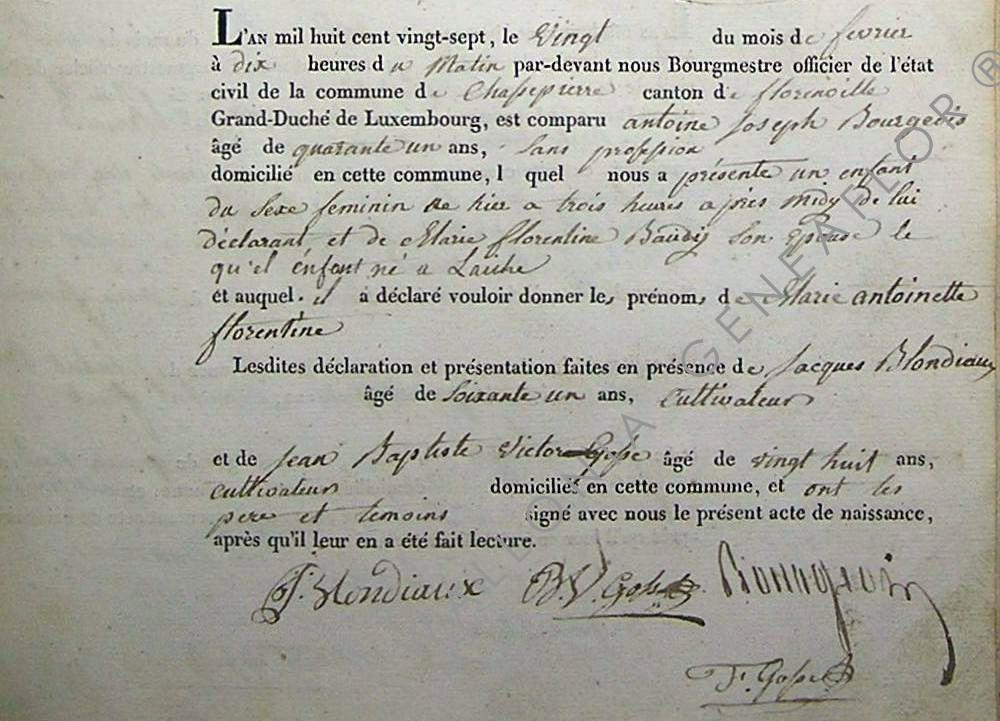 L'AN mil huit cent vingt-sept, le Vingt du mois de fevrier
à dix heures du Matin par-devant nous Bourgmestre officier de l'état
civil de la commune de Chassepierre canton de florenville
Grand-Duché de Luxembourg, est comparu antoine Joseph Bourgeois
âgé de quarante un ans, Sans profession
domicilié en cette commune, l quel nous a présenté un enfant
du Sexe feminin Né hier a trois heures après midy de lui
déclarant, et de Marie florentine Baudy Son épouse le
qu'el énfant né a Laiche
et auquel il a déclaré vouloir donner les prénoms de Marie antoinette
florentine
Lesdites déclaration et présentation faites en présence de Jacques Blondiaux
âgé de Soixante un ans, Cultivateur
et de Jean Baptiste Victor Gosse âgé de vingt huit ans,
cultivateur domiciliés en cette commune, et ont les
pere et temoins signé avec nous le présent acte de naissance,
après qu'il leur en a été fait lecture.
J. Blondiaux B.V. Gosse Bourgeois
F. Gosse
GENEAFLOR ®